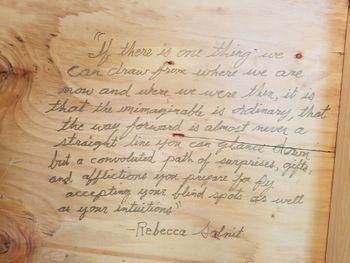 "If there is one thing we
can draw from where we are
now and where we were then, it is
that the unimaginable is ordinary, that
the way forward is almost never a
straight line you can glance down
but a convoluted path of surprises, gifts,
and afflictions you prepare for by
accepting your blind spots as well
as your intuitions"
-Rebecca Solnit